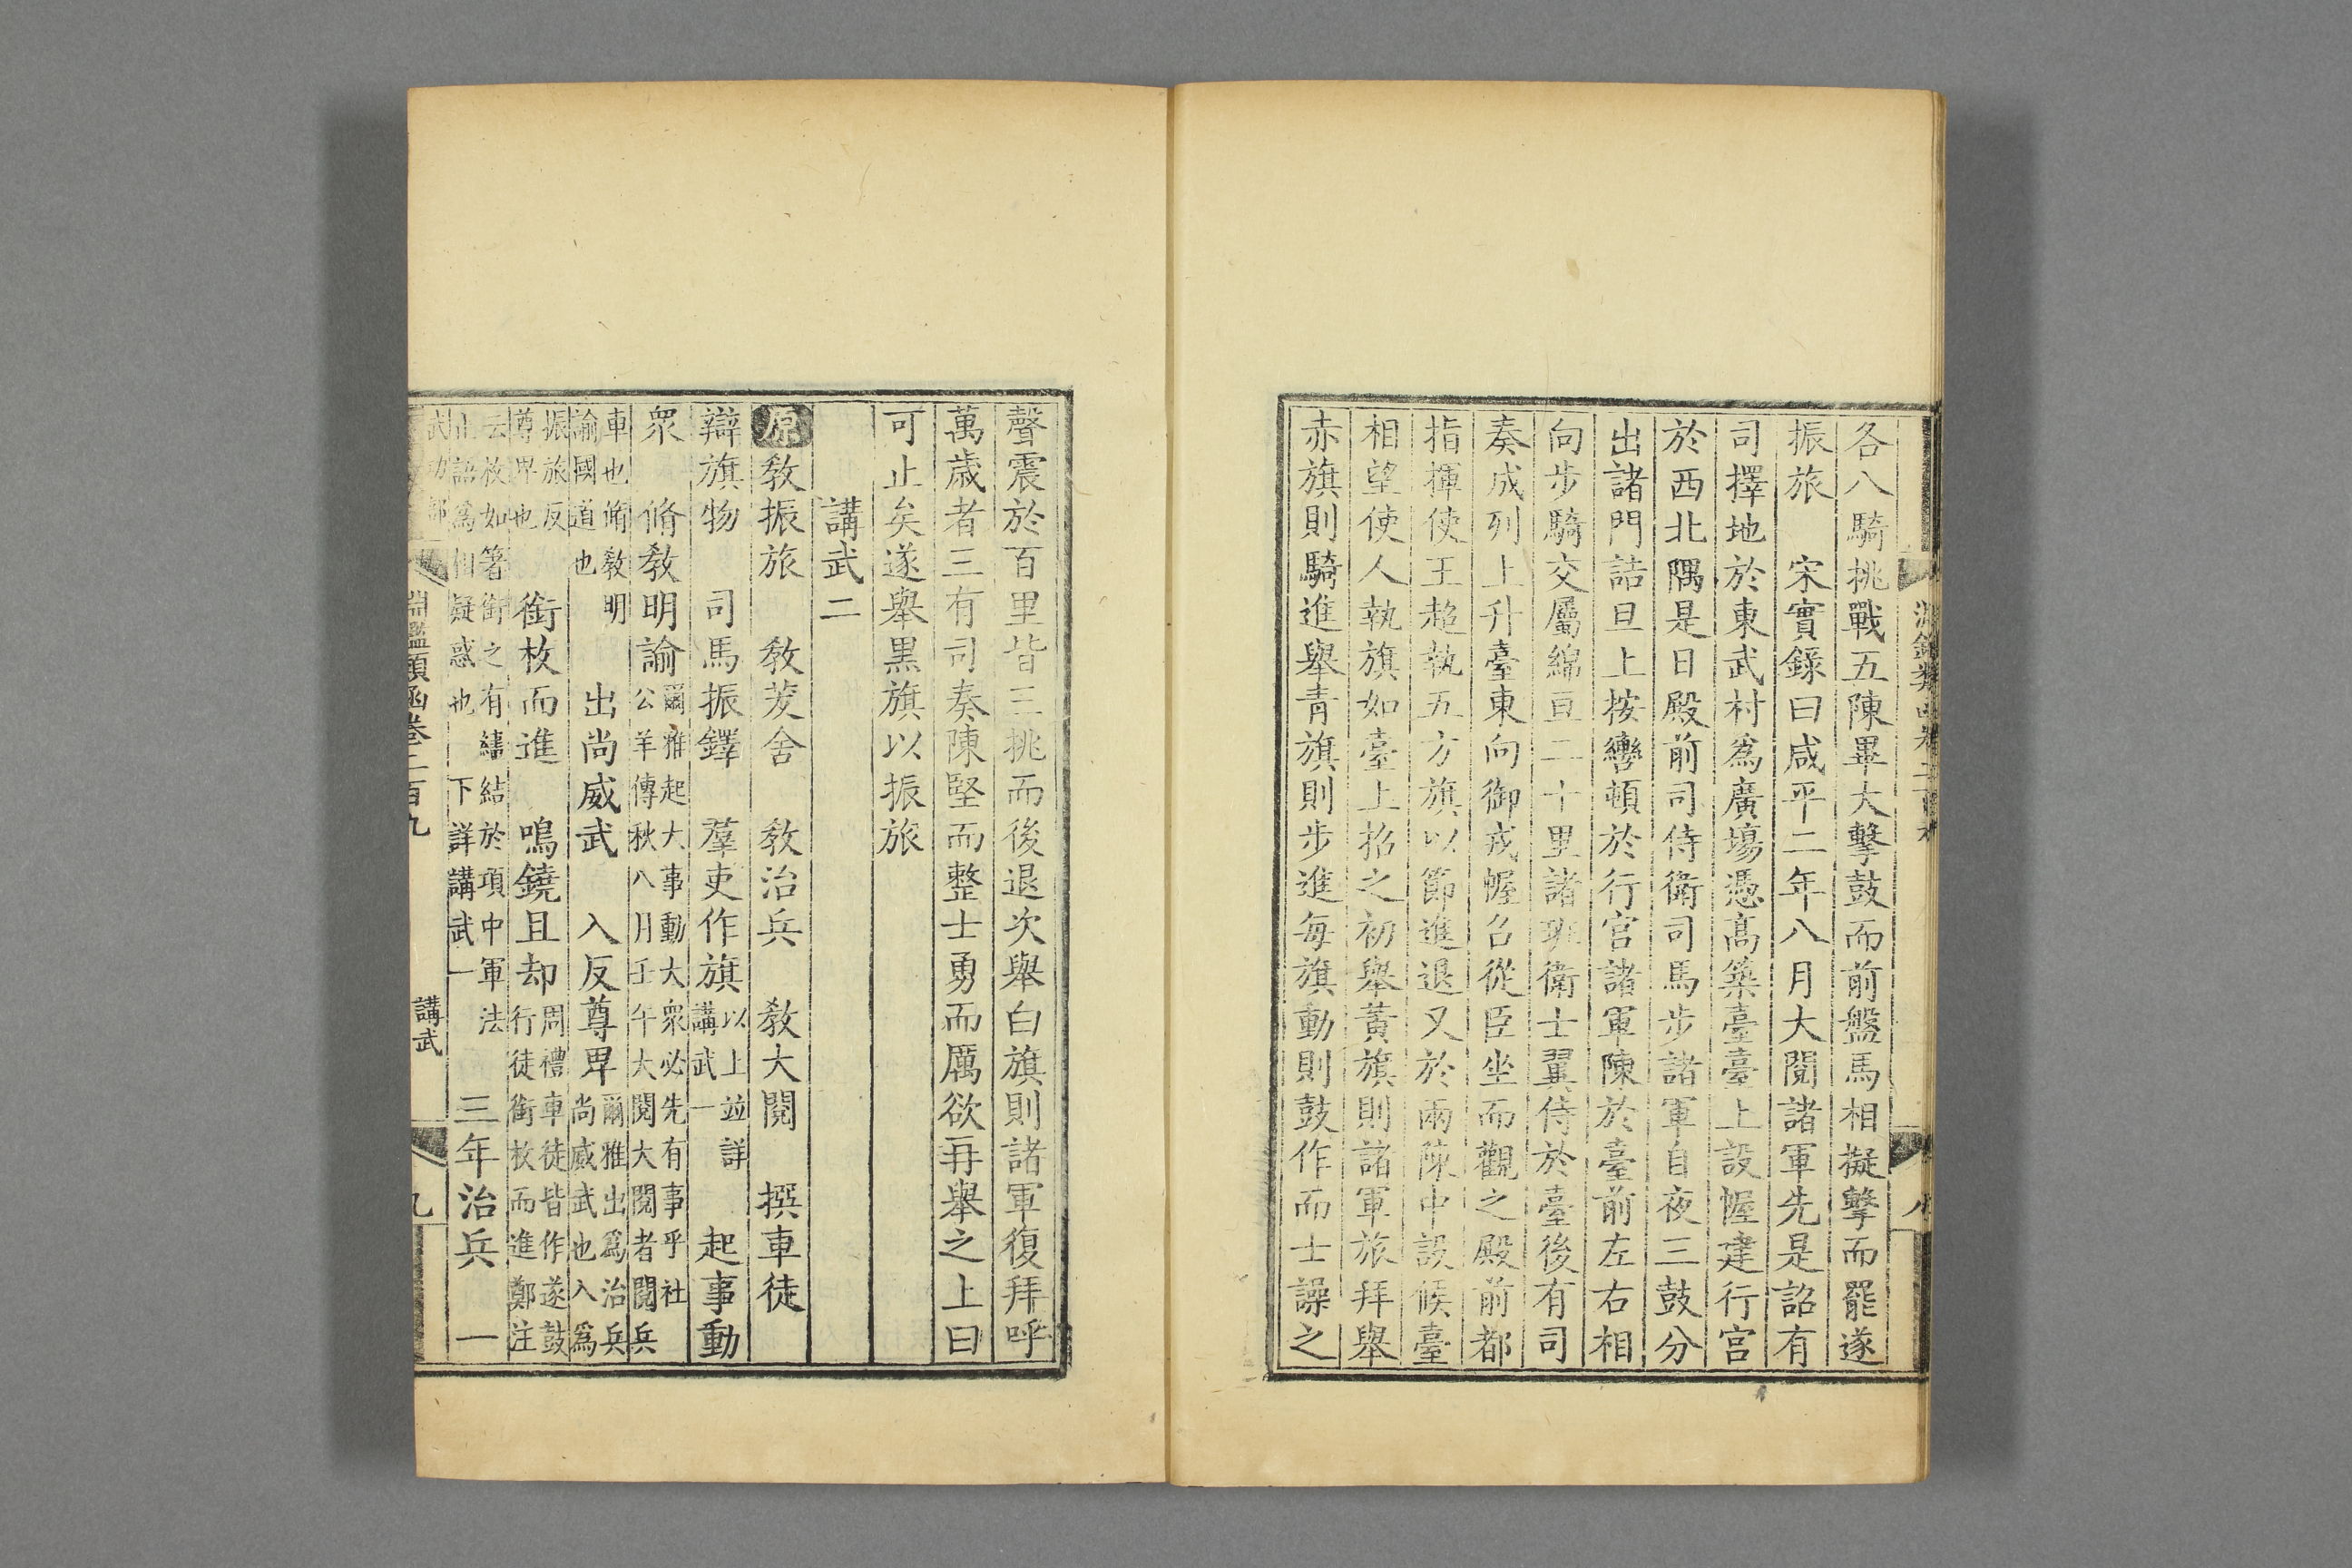 各八騎挑戰五陳畢大擊鼓而前盤馬相擬擊而罷遂
振旅　宋實錄曰咸平二年八月大閱諸軍先是詔有
司擇地於東武村爲廣場憑高築臺臺上設幄建行宫
於西北隅是日殿前司侍衛司馬步諸軍自夜三鼓分
出諸門詰旦上按轡頓於行宫諸軍陳於臺前左右相
向步騎交屬綿亘二十里諸班衛士翼侍於臺後有司
奏成列上升臺東向御戎幄召從臣坐而觀之殿前都
指揮使王超執五方旗以節進退又於兩陳中設候臺
相望使人執旗如臺上招之初舉黃旗則諸軍旅拜舉
赤旗則騎進舉青旗則步進每旗動則鼓作而士譟之
聲震於百里皆三挑而後退次舉白旗則諸軍復拜呼
萬歲者三有司奏陳堅而整士勇而厲欲再舉之上曰
可止矣遂舉黑旗以振旅
講武二
原教振旅　教茇舍　教治兵　教大閱　撰車徒
辯旗物　司馬振鐸　羣吏作旗以上並詳講武一　起事動
衆　脩教明諭爾雅起大事動大衆必先有事乎社公羊傳秋八月壬午大閱大閱者閱兵
車也脩教明諭國道也　出尚威武　入反尊卑爾雅出爲治兵尚威武也入爲
振旅反尊卑也　銜枚而進　鳴鐃且却周禮車徒皆作遂鼓行徒銜枚而進鄭注
云枚如箸銜之有繣結於項中軍法止語爲相疑惑也　下詳講武一　三年治兵一
淵鑑類函卷二百九
講武
九